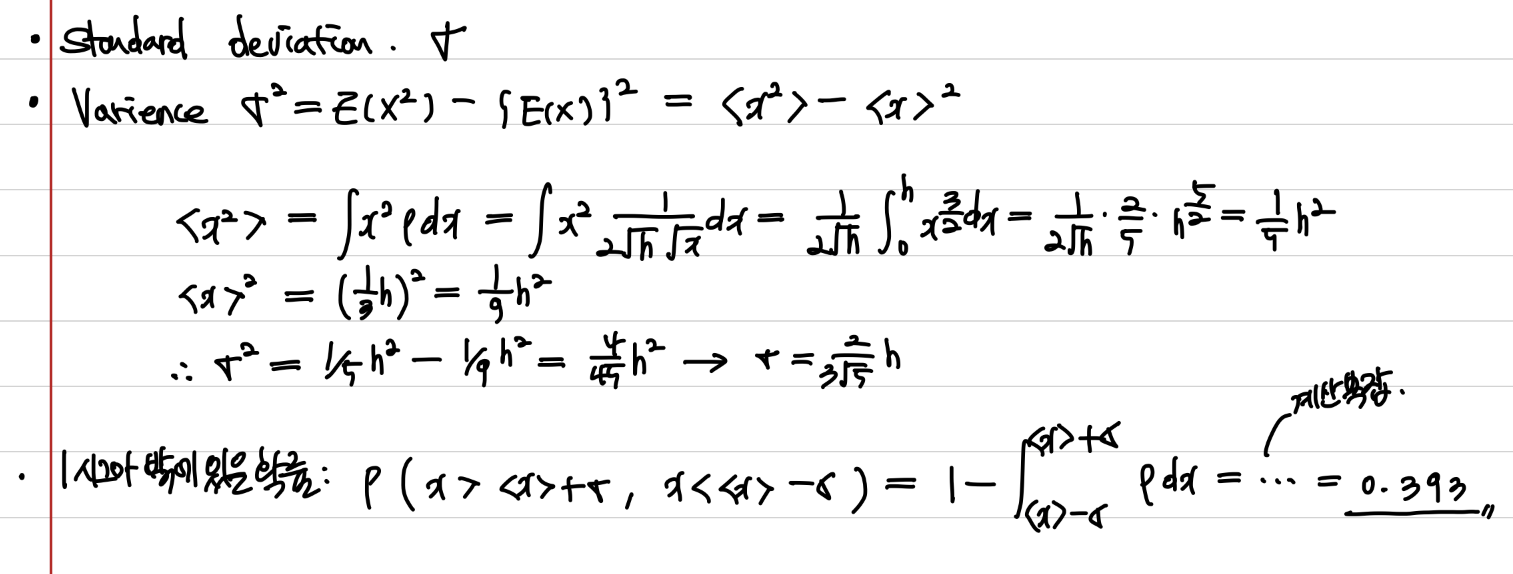 • Standard deviation. σ
• Varience σ² = E(X²) - {E(X)}² = <x²> - <x>²
<x²> = ∫x²ρdx = ∫x² 1/(2√h√x) dx = 1/(2√h) ∫₀ʰ x^(3/2) dx = 1/(2√h) · 2/5 · h^(5/2) = 1/5 h²
<x>² = (1/3 h)² = 1/9 h²
∴ σ² = 1/5 h² - 1/9 h² = 4/45 h² → σ = 2/(3√5) h
계산복잡.
· 1시그마 밖에 있을 확률: P(x > <x>+σ, x < <x>-σ) = 1 - ∫_{<x>-σ}^{<x>+σ} ρdx = ··· = 0.393〃